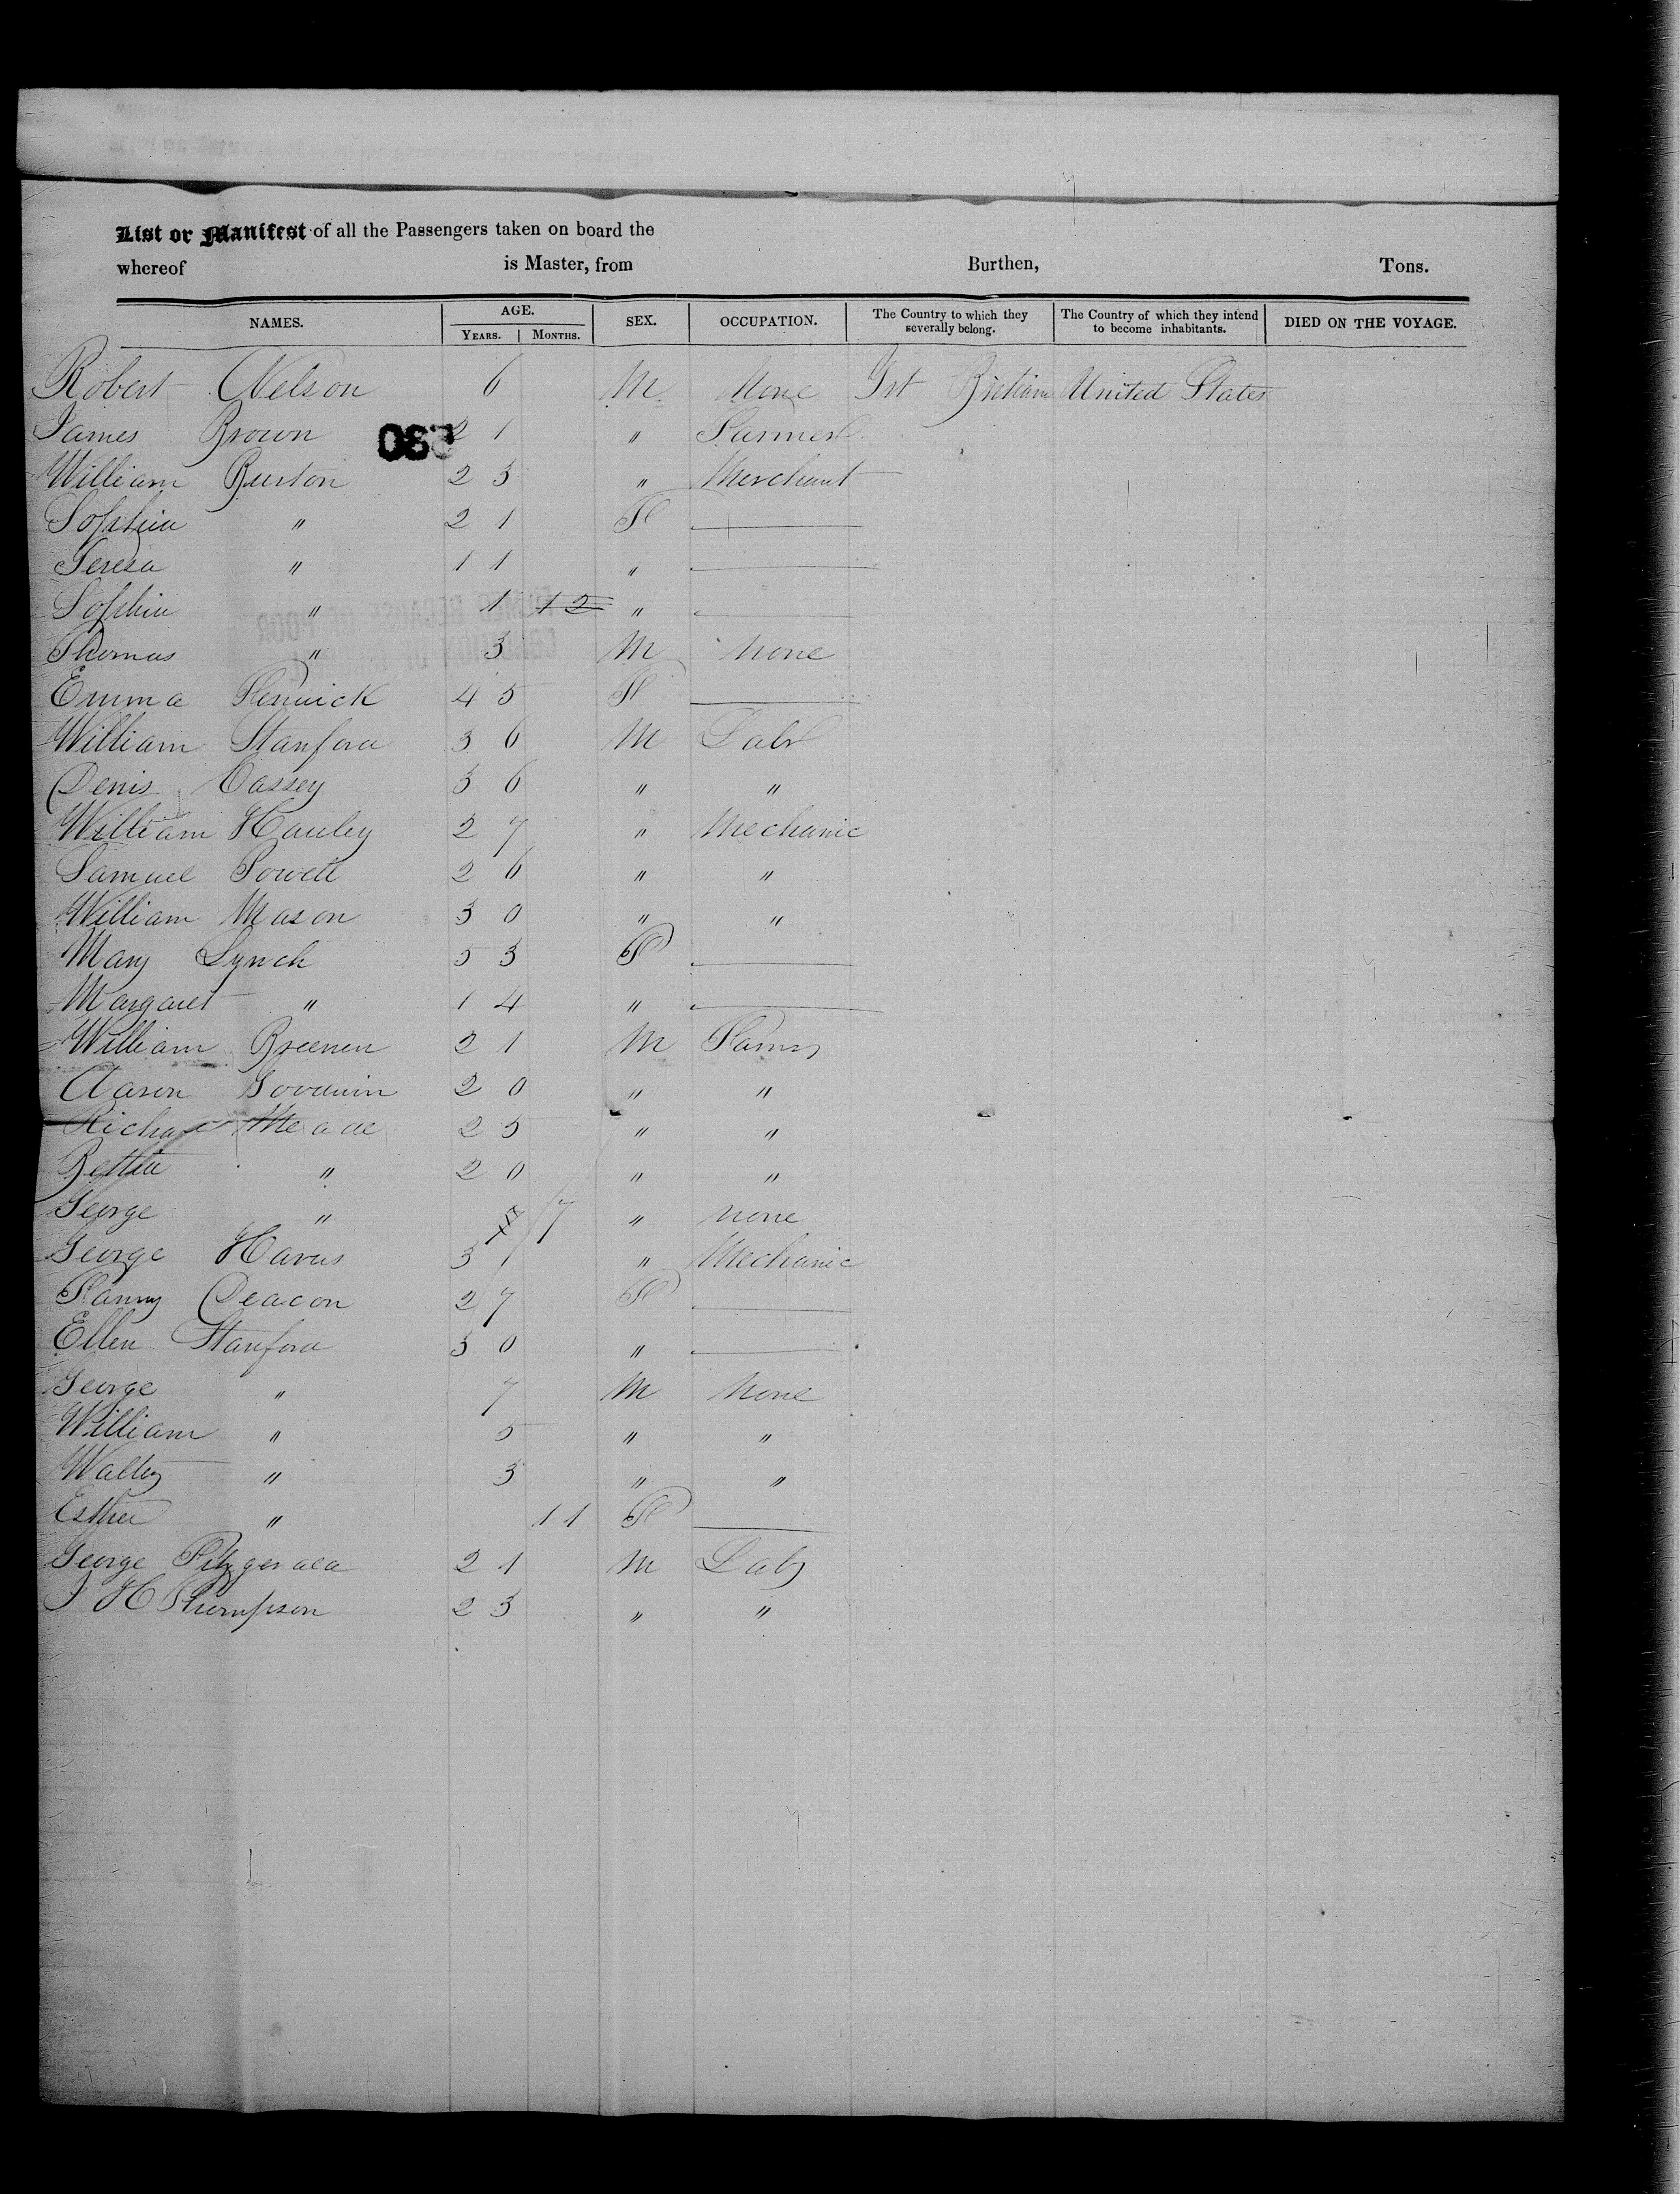 List or Manifest of all the Passengers taken on board the
whereof is Master, from Burthen, Tons.
NAMES. AGE. YEARS. MONTHS. SEX. OCCUPATION. The Country to which they severally belong. The Country of which they intend to become inhabitants. DIED ON THE VOYAGE.
Robert Nelson 6 M None Grt Britian United States
James Brown 21 " Farmer
William Burton 23 " Merchant
Sophia " 21 F
Teresa " 11 "
Sophia " 1 12 "
Thomas " 3 M None
Emma Fenwick 45 F
William Stanford 36 M Labr
Denis Cassey 36 " "
William Hawley 27 " Mechanic
Samuel Powell 26 " "
William Mason 30 " "
Mary Lynch 53 F
Margaret " 14 "
William Breenen 21 M Farmr
Aaron Goodwin 20 " "
Richard Meade 25 " "
" 20 " "
George " 7 " None
George 31 " Mechanic
Fanny Deacon 27 F
Ellen Stanford 30 "
George " 7 M None
William " 5 " "
Walter " 3 " "
Esther " 11 F
George Fitzgerald 21 M Labr
J H Thompson 23 " "